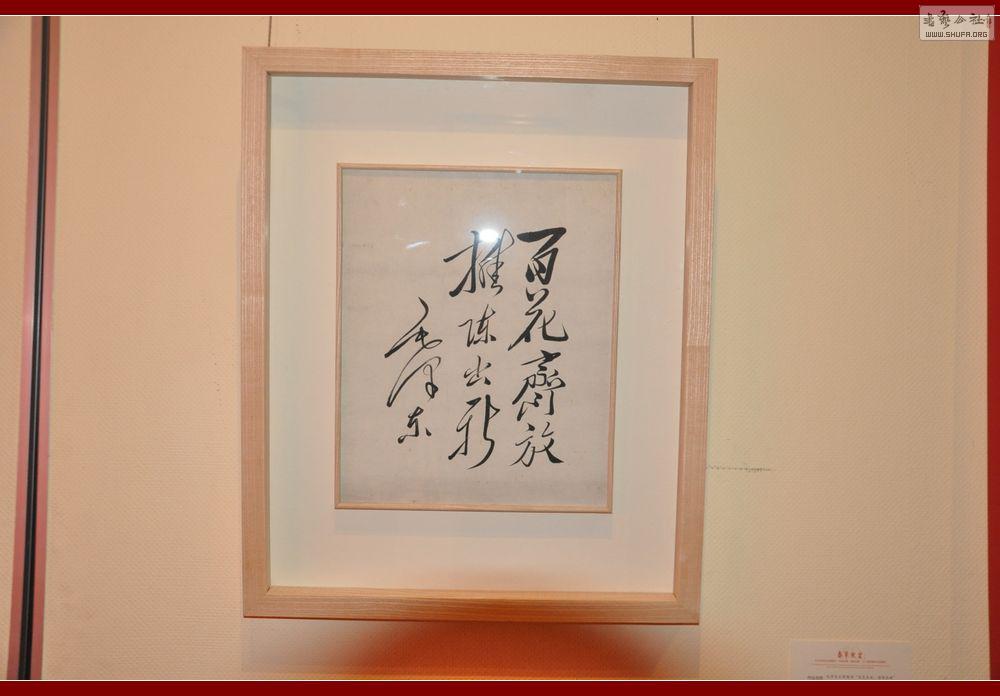 百花齊放
推陈出新
毛泽东
书艺公社
WWW.SHUFA.ORG